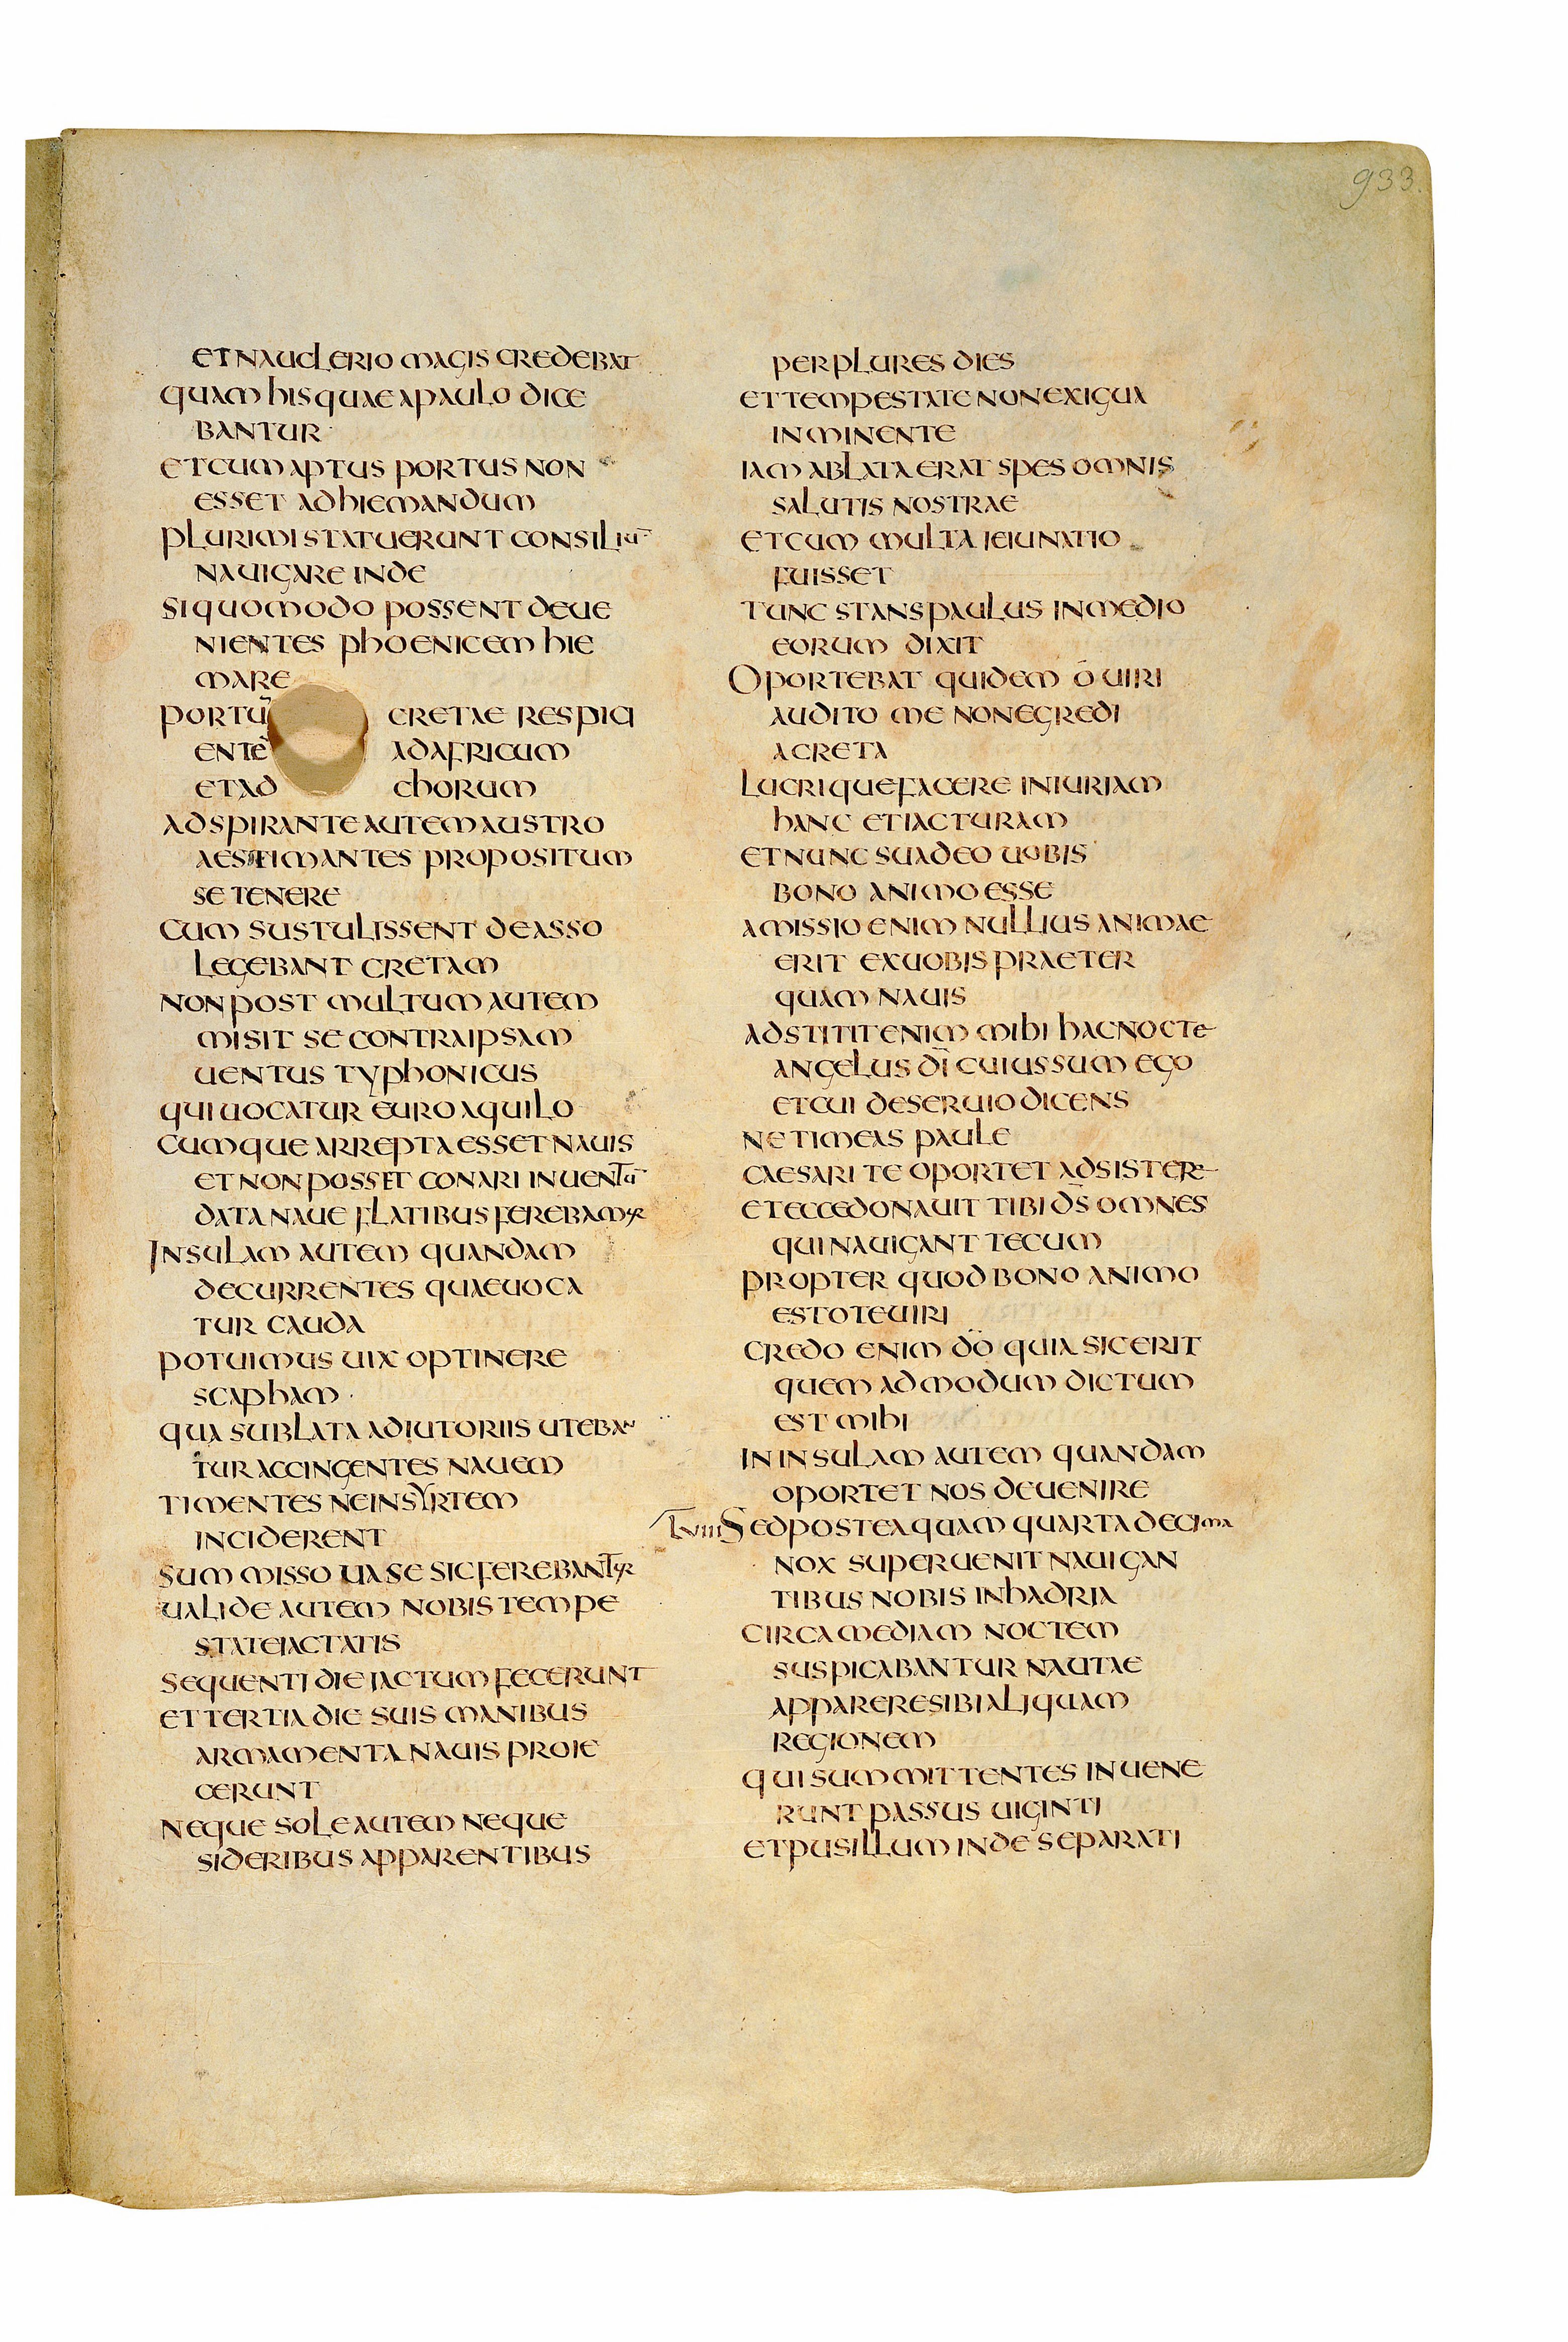 933.
ET NAUCLERIO MAGIS CREDEBAT
QUAM HIS QUAE A PAULO DICE
BANTUR
ET CUM APTUS PORTUS NON
ESSET AD HIEMANDUM
PLURIMI STATUERUNT CONSILIŪ
NAUIGARE INDE
SI QUOMODO POSSENT DEUE
NIENTES PHOENICEM HIE
MARE
PORTŪ CRETAE RESPICI
ENTĒ AD AFRICUM
ET AD CHORUM
ADSPIRANTE AUTEM AUSTRO
AESTIMANTES PROPOSITUM
SE TENERE
CUM SUSTULISSENT DE ASSO
LEGEBANT CRETAM
NON POST MULTUM AUTEM
MISIT SE CONTRA IPSAM
UENTUS TYPHONICUS
QUI UOCATUR EUROAQUILO
CUMQUE ARREPTA ESSET NAUIS
ET NON POSSET CONARI IN UENTŪ
DATA NAUE FLATIBUS FEREBAMUR
INSULAM AUTEM QUANDAM
DECURRENTES QUAE UOCA
TUR CAUDA
POTUIMUS UIX OPTINERE
SCAPHAM
QUA SUBLATA ADIUTORIIS UTEBAN
TUR ACCINGENTES NAUEM
TIMENTES NE IN SYRTEM
INCIDERENT
SUMMISSO UASE SIC FEREBANTUR
UALIDE AUTEM NOBIS TEMPE
STATE IACTATIS
SEQUENTI DIE IACTUM FECERUNT
ET TERTIA DIE SUIS MANIBUS
ARMAMENTA NAUIS PROIE
CERUNT
NEQUE SOLE AUTEM NEQUE
SIDERIBUS APPARENTIBUS
PER PLURES DIES
ET TEMPESTATE NON EXIGUA
INMINENTE
IAM ABLATA ERAT SPES OMNIS
SALUTIS NOSTRAE
ET CUM MULTA IEIUNATIO
FUISSET
TUNC STANS PAULUS IN MEDIO
EORUM DIXIT
OPORTEBAT QUIDEM Ō UIRI
AUDITO ME NON EGREDI
A CRETA
LUCRIQUE FACERE INIURIAM
HANC ET IACTURAM
ET NUNC SUADEO UOBIS
BONO ANIMO ESSE
AMISSIO ENIM NULLIUS ANIMAE
ERIT EX UOBIS PRAETER
QUAM NAUIS
ADSTITIT ENIM MIHI HAC NOCTE
ANGELUS DĪ CUIUS SUM EGO
ET CUI DESERUIO DICENS
NE TIMEAS PAULE
CAESARI TE OPORTET ADSISTERE
ET ECCE DONAUIT TIBI DS̄ OMNES
QUI NAUIGANT TECUM
PROPTER QUOD BONO ANIMO
ESTOTE UIRI
CREDO ENIM DŌ QUIA SIC ERIT
QUEM AD MODUM DICTUM
EST MIHI
IN INSULAM AUTEM QUANDAM
OPORTET NOS DEUENIRE
LXVIII SED POSTEAQUAM QUARTA DECIMA
NOX SUPERUENIT NAUIGAN
TIBUS NOBIS IN HADRIA
CIRCA MEDIAM NOCTEM
SUSPICABANTUR NAUTAE
APPARERE SIBI ALIQUAM
REGIONEM
QUI SUMMITTENTES INUENE
RUNT PASSUS UIGINTI
ET PUSILLUM INDE SEPARATI